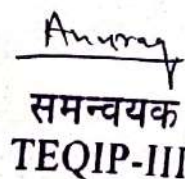 Anurag
समन्वयक
TEQIP-III